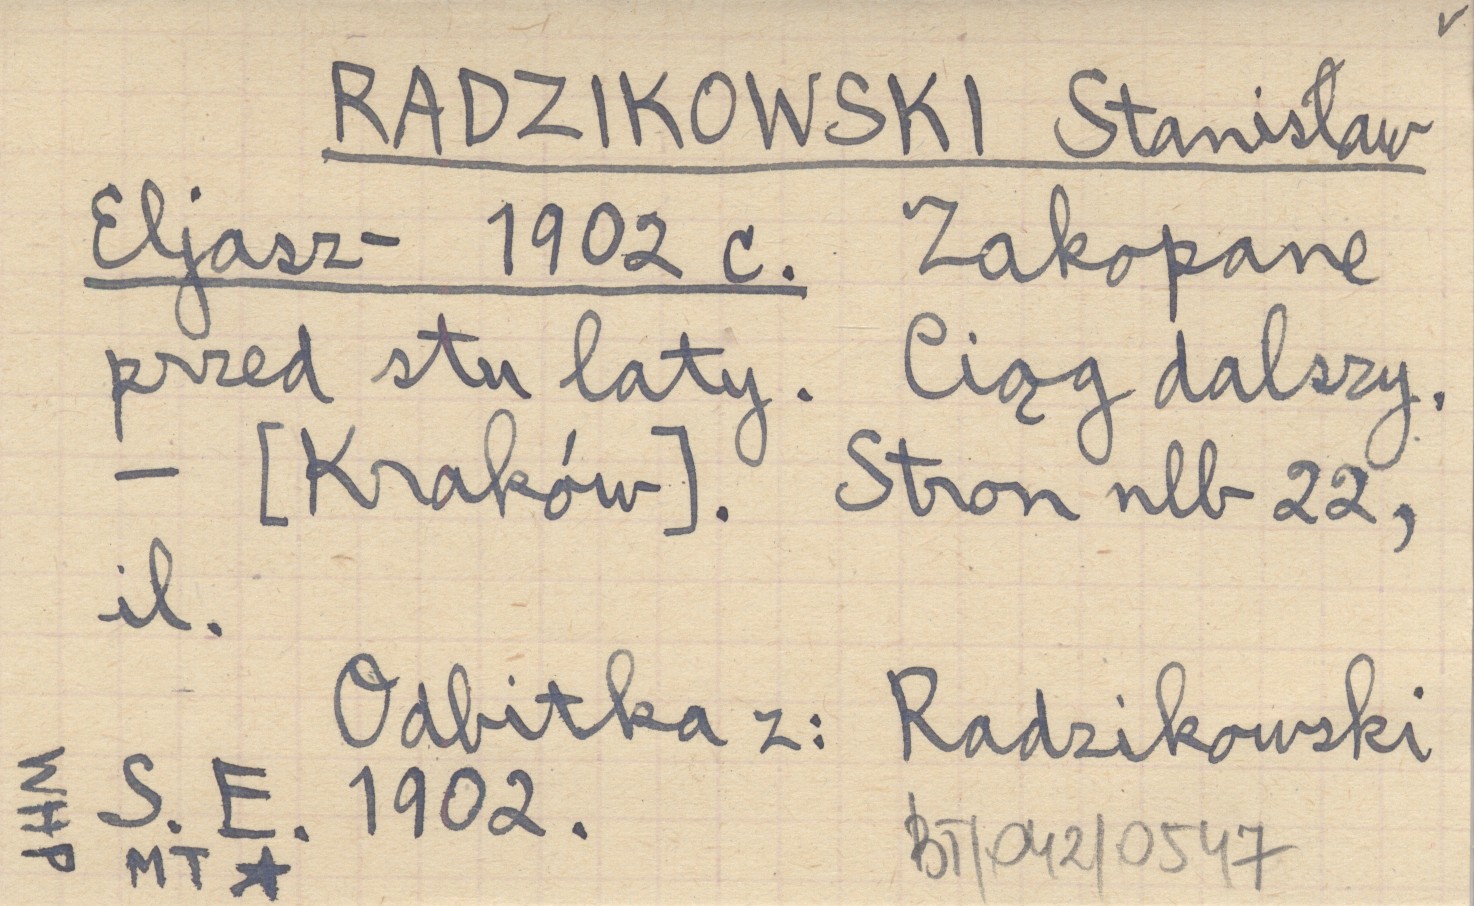 RADZIKOWSKI Stanisław
Eljasz- 1902 c. Zakopane
przed stu laty. Ciąg dalszy.
– [Kraków]. Stron nlb 22,
il.
Odbitka z: Radzikowski
S. E. 1902.
WHP
MT ★
BT/042/0547